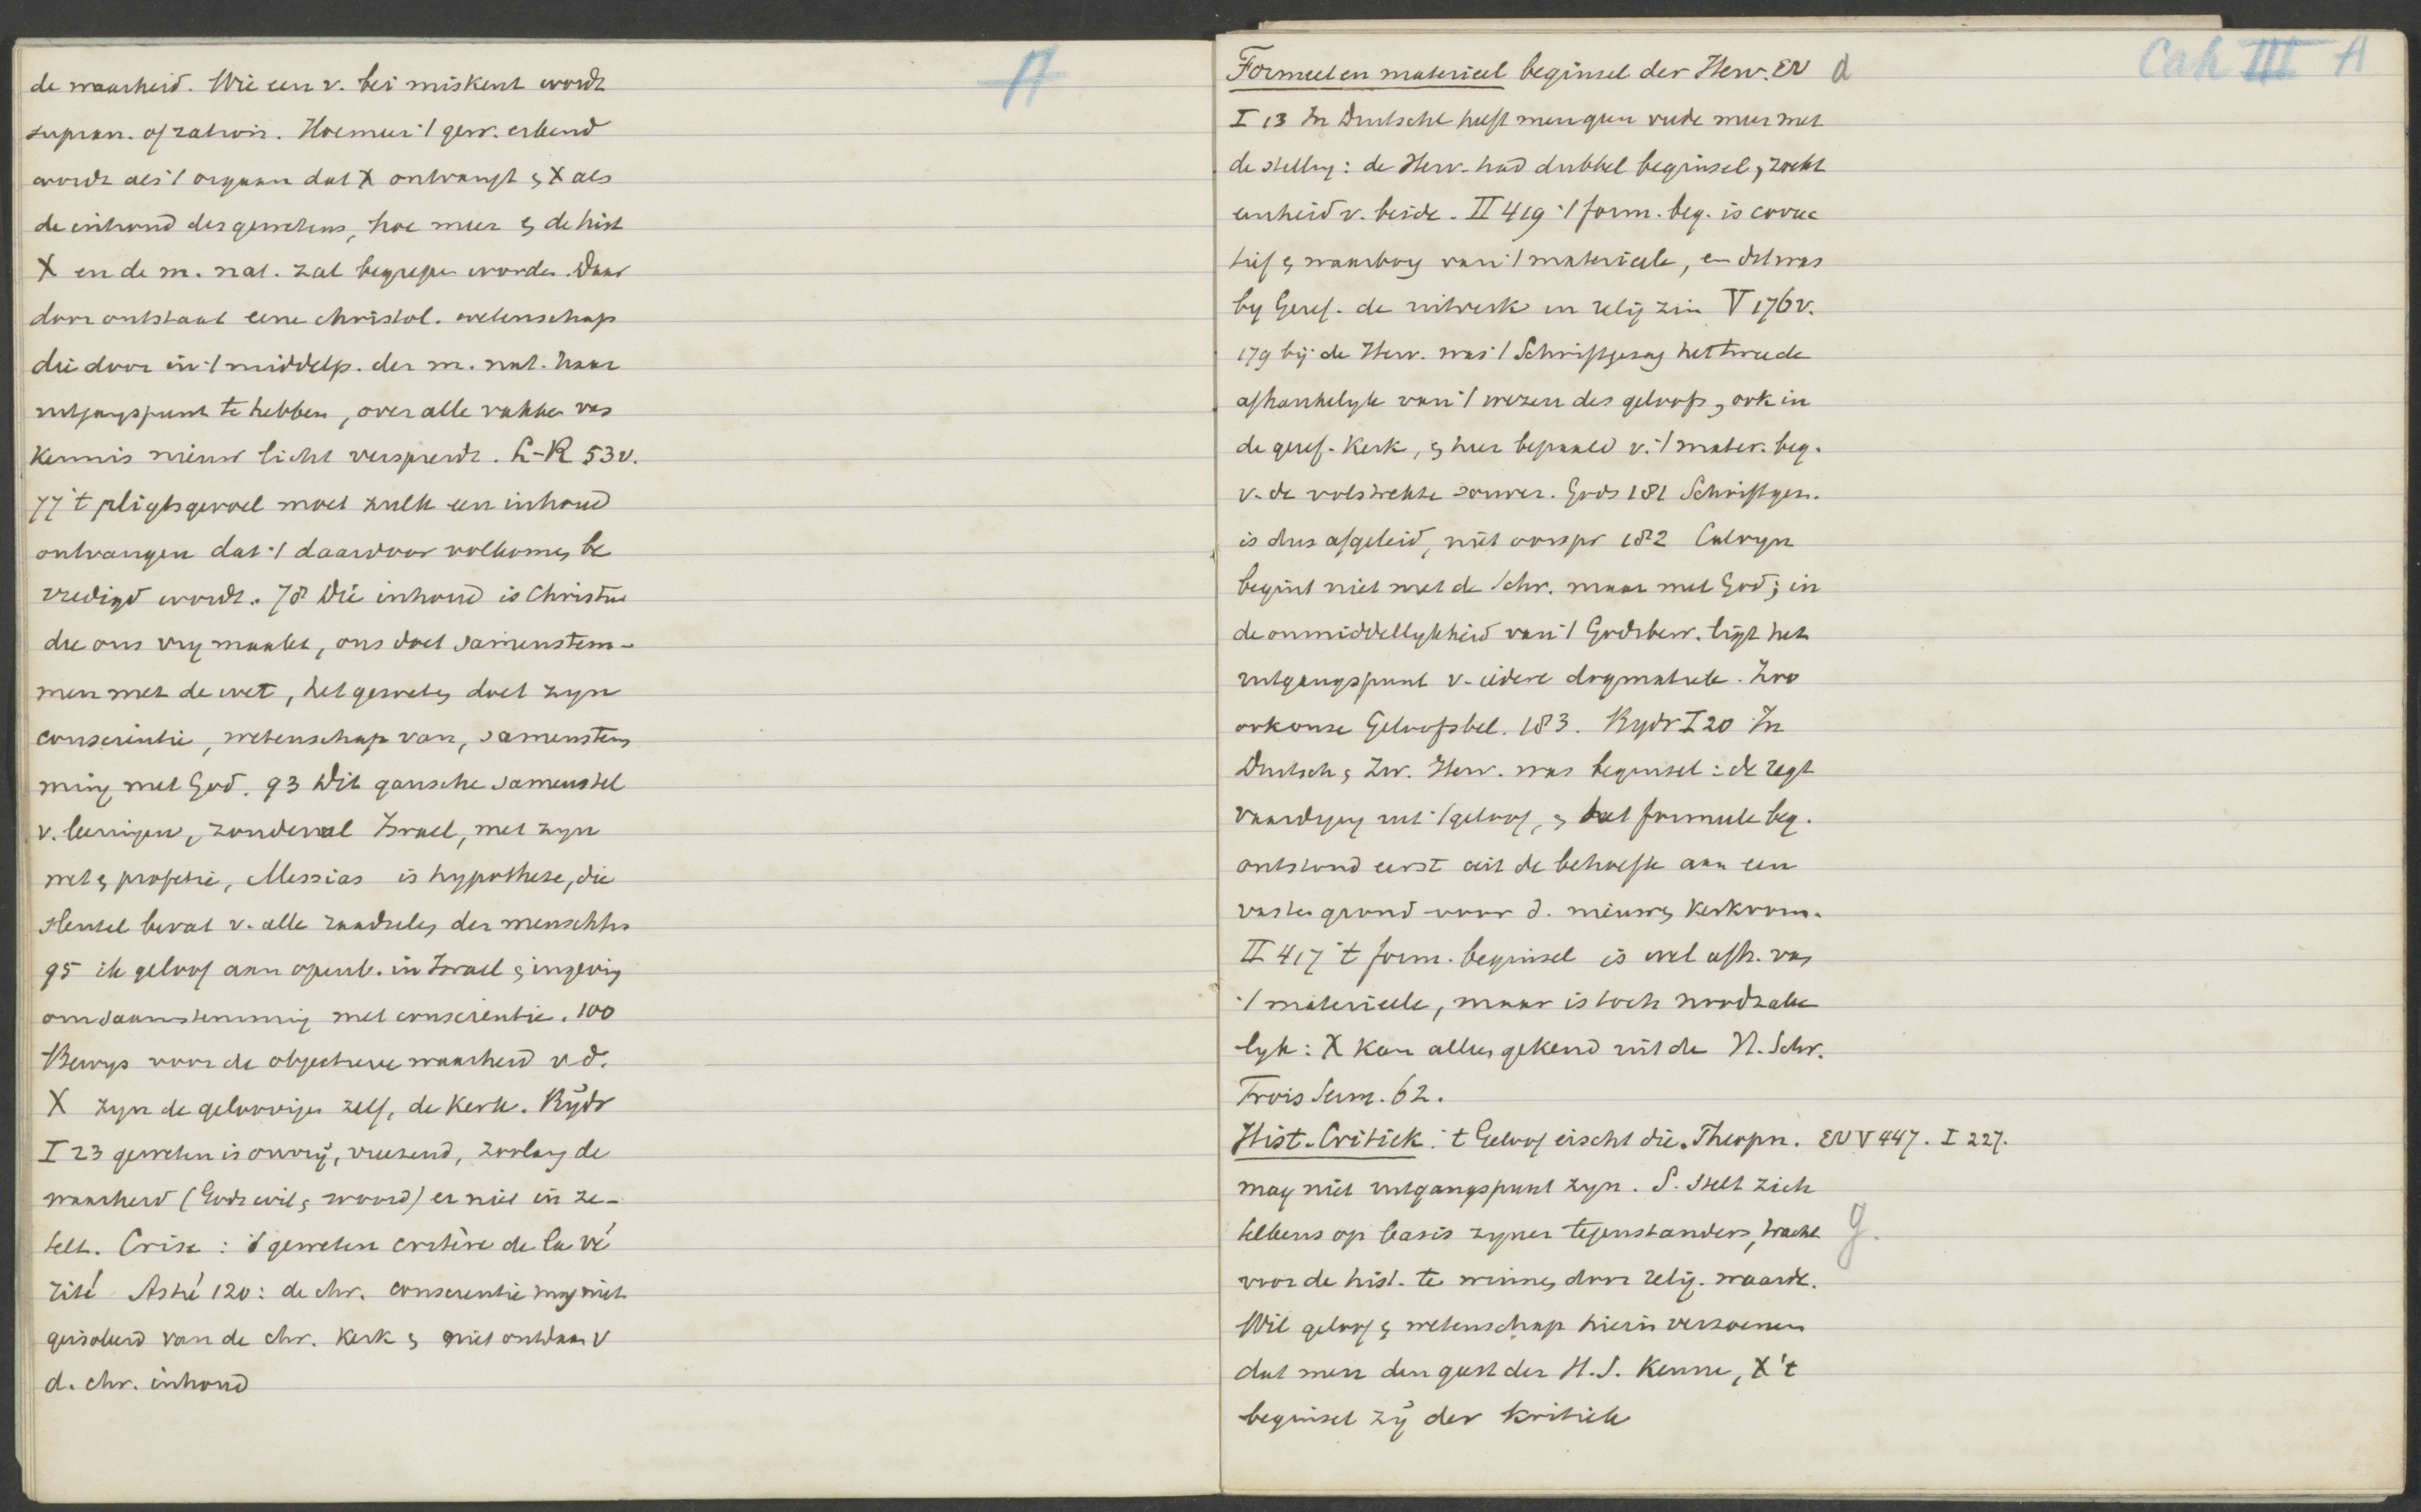 de waarheid. Wie een v. bei miskent wordt
supran. of ration. Hoe meer 't gew. erkend
wordt als 't orgaan dat X ontvangt & X als
de inhoud des gewetens, hoe meer & de hist
X en de m. nat. zal begrepen worden. Daar
door ontstaat eene christol. wetenschap
die door in 't middelp. der m. nat. haar
uitgangspunt te hebben, over alle vakken van
kennis nieuw licht verspreidt. L-R 53v.
77 't pligtsgevoel moet zulk een inhoud
ontvangen dat 't daardoor volkomen be
vredigd wordt. 78 Die inhoud is Christus
die ons vrij maakt, ons doet samenstem-
men met de wet, het geweten doet zyn
conscientie, wetenschap van, samenstem
ming met God. 93 Dit gansche samenstel
v. leeringen, zonderval Israel, met zyn
wet & profetie, Messias is hypothese, die
sleutel bevat v. alle raadselen der menschh
95 ik geloof aan openb. in Israel & ingeving
om saamstemming met conscientie. 100
Bewys voor de objectieve waarheid v d.
X zyn de geloovigen zelf, de kerk. Rydr
I 23 geweten is onvrij, vreesend, zoolang de
waarheid (Gods wil & woord) er niet in ze-
telt. Crise : 't geweten critère de la vé
rité Astié 120: de chr. conscientie mag niet
geisoleerd van de chr. kerk & niet ontdaan v
d. chr. inhoud
A
Formeel en materieel beginsel der Herv. EV d
Cah III A
I 13 In Duitschl heeft men geen vrede meer met
de stelling: de Herv. had dubbel beginsel, zoekt
eenheid v. beide. II 419 't form. beg. is correc
tief & waarborg van 't materieele, en dat was
by Geref. de uitverk in relig zin V 176v.
179 bij de Herv. was 't Schriftgezag het tweede
afhankelyk van 't wezen des geloofs, ook in
de geref. Kerk, & hier bepaald v. 't mater. beg.
v. de volstrekte souver. Gods 181 Schriftgez.
is dus afgeleid, niet oorspr 182 Calvyn
begint niet met de Schr. maar met God; in
de onmiddellykheid van 't Godsbew. ligt het
uitgangspunt v. iedere dogmatiek. Zoo
ook onze Geloofsbel. 183. Rydr I 20 In
Duitsch & Zw. Herv. was beginsel: de regt
vaardiging uit 't geloof, & het formele beg.
ontstond eerst uit de behoefte aan een
vasten grond voor d. nieuwe kerkvorm.
II 417 't form. beginsel is wel afh. van
't materieele, maar is toch noodzake
lyk: X kan alleen gekend uit de H. Schr.
Trois Serm. 62.
Hist. Critiek : 't Geloof eischt die. Theopn. EV V 447. I 227.
mag niet uitgangspunt zyn. S. stelt zich
telkens op basis zyner tegenstanders, tracht g.
voor de hist. te winnen door relig. waarde.
Wil geloof & wetenschap hierin verzoenen
dat men den geest der H.S. kenne, X 't
beginsel zij der kritiek